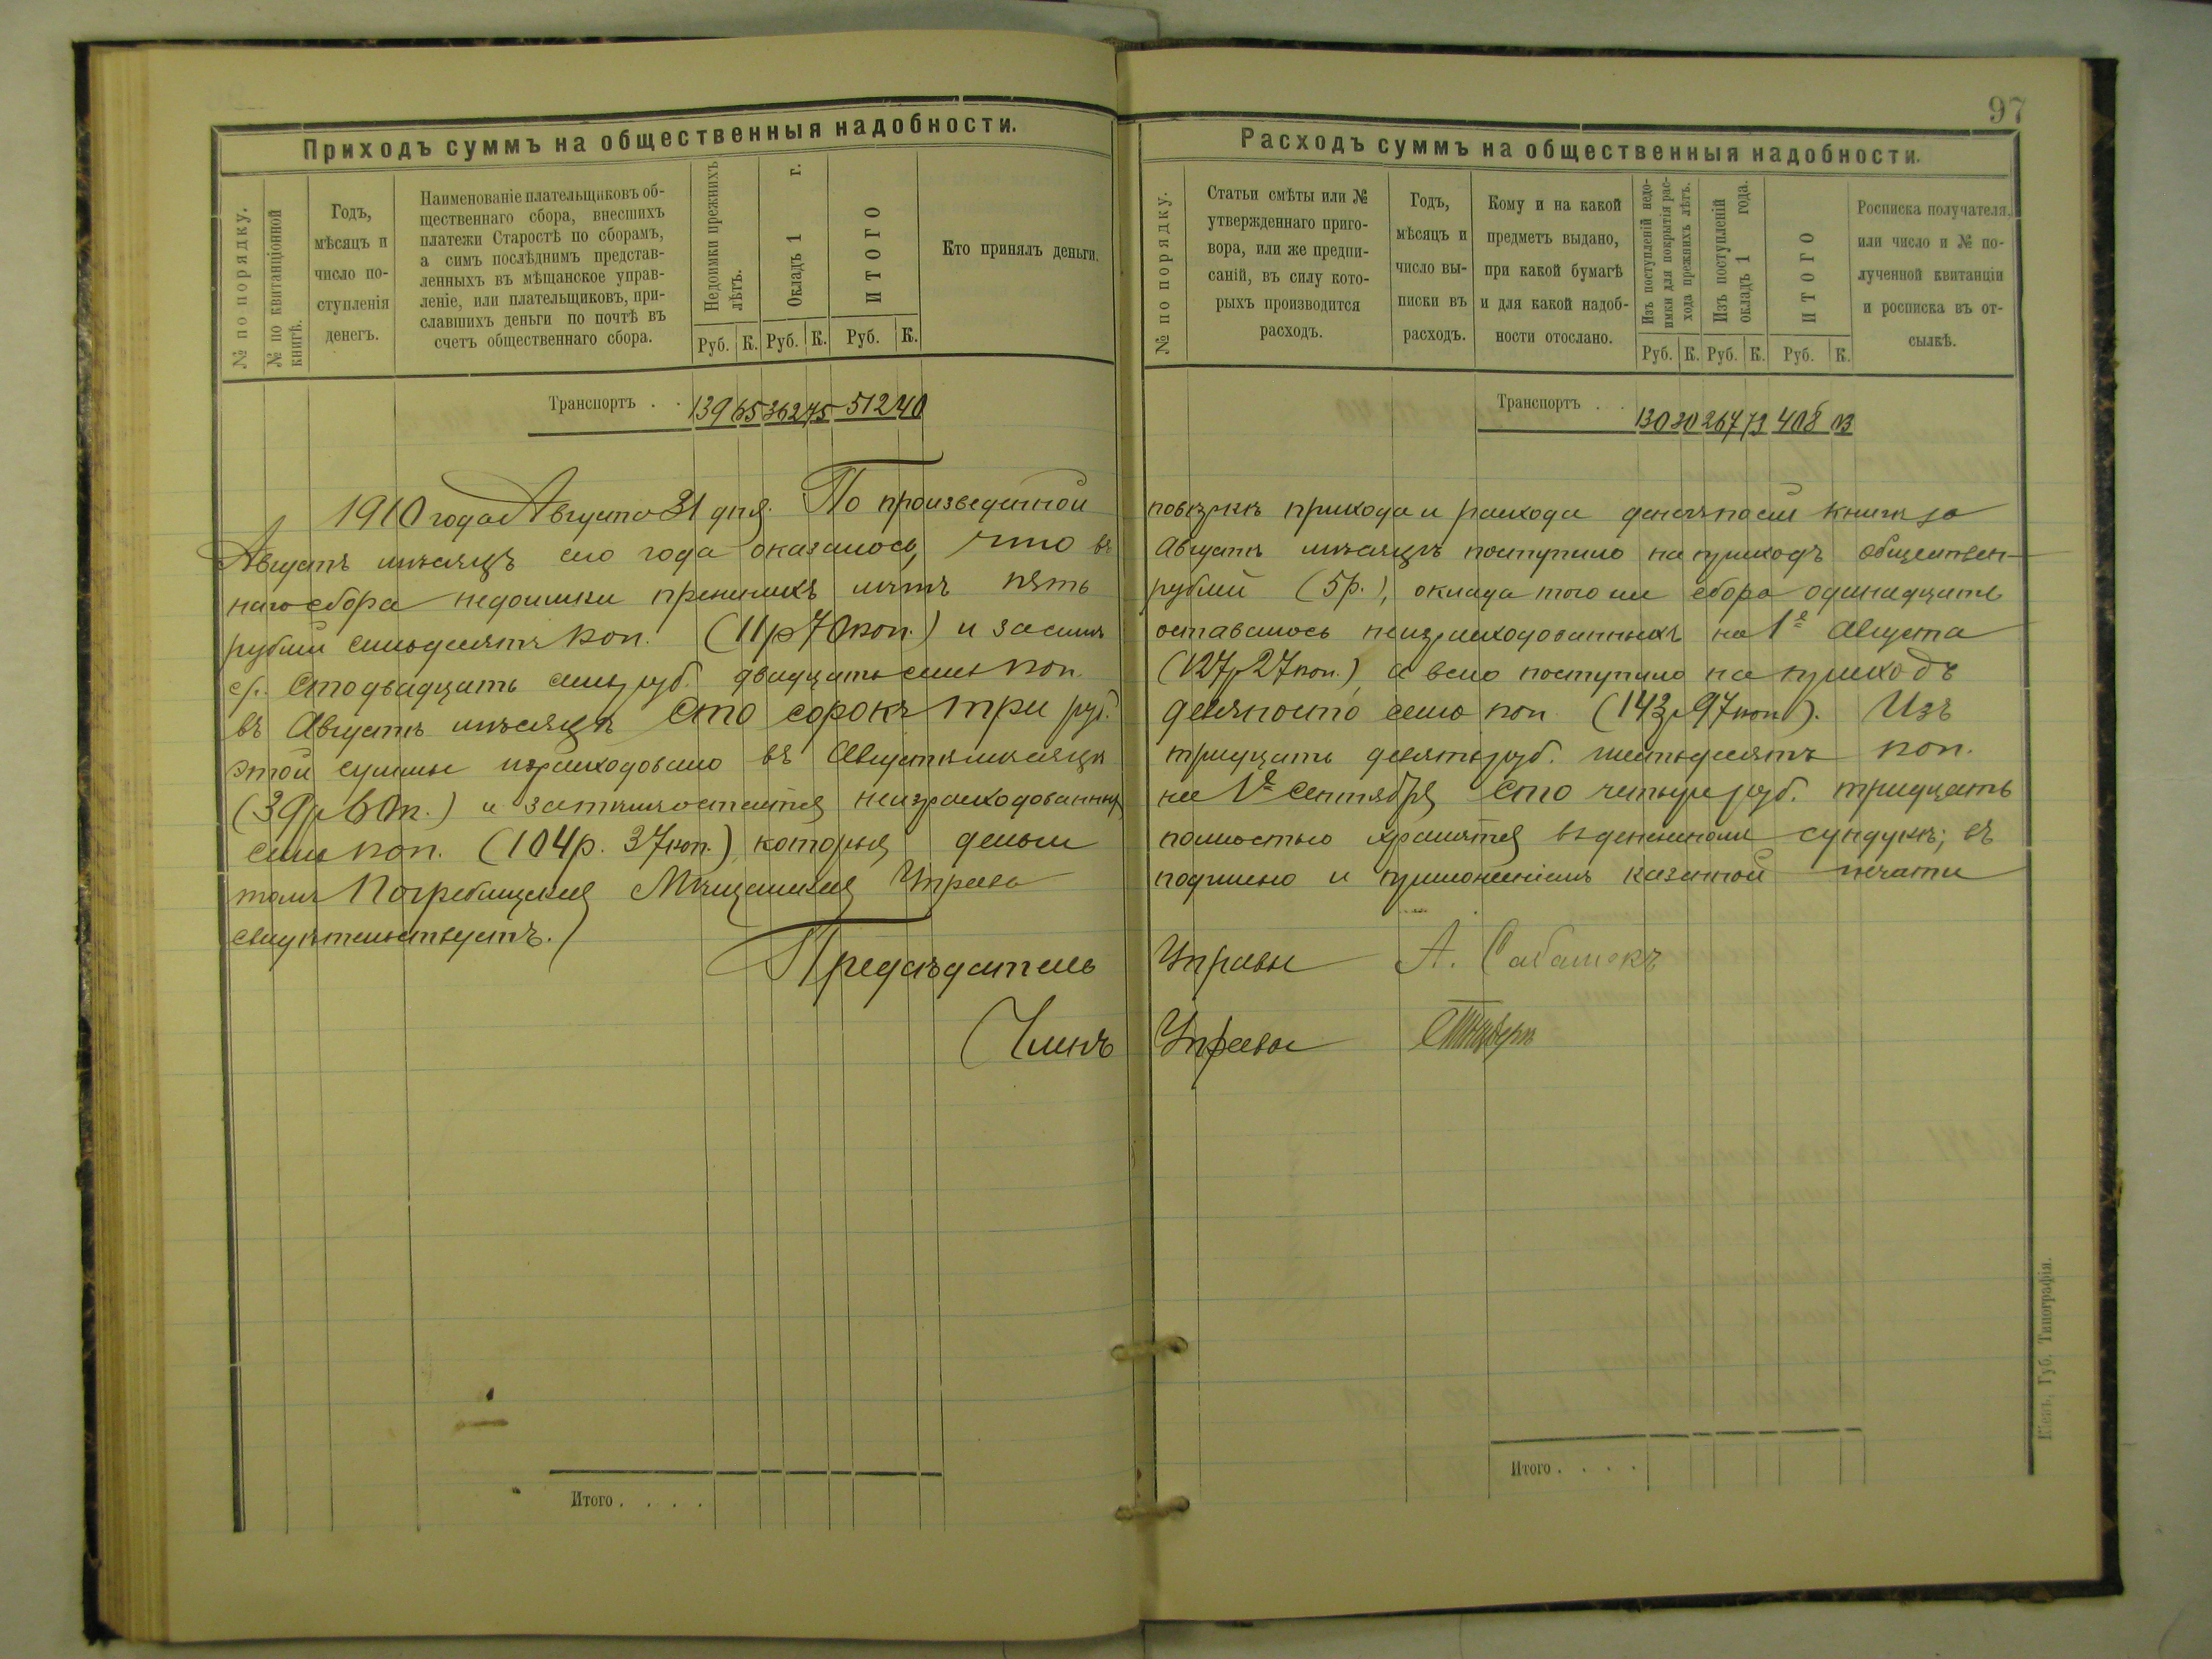 97
Приходъ суммъ на общественныя надобности.
№ по порядку.
№ по квитанціонной
книгѣ.
Годъ,
мѣсяцъ и
число по-
ступленія
денегъ.
Наименованіе плательщиковъ об-
щественнаго сбора, внесшихъ
платежи Старостѣ по сборамъ,
а симъ послѣднимъ представ-
ленныхъ въ мѣщанское управ-
леніе, или плательщиковъ, при-
славшихъ деньги по почтѣ въ
счетъ общественнаго сбора.
Недоимки прежнихъ
лѣтъ.
Окладъ 1 г.
ИТОГО
Кто принялъ деньги.
Руб. К. Руб. К. Руб. К.
Транспортъ . . 139 65 362 75 512 40
Расходъ суммъ на общественныя надобности.
№ по порядку.
Статьи смѣты или №
утвержденнаго приго-
вора, или же предпи-
саній, въ силу кото-
рыхъ производится
расходъ.
Годъ,
мѣсяцъ и
число вы-
писки въ
расходъ.
Кому и на какой
предметъ выдано,
при какой бумагѣ
и для какой надоб-
ности отослано.
Изъ поступленій недо-
имки для покрытія рас-
хода прежнихъ лѣтъ.
Изъ поступленій
окладъ 1 года.
ИТОГО
Росписка получателя,
или число и № по-
лученной квитанціи
и росписка въ от-
сылкѣ.
Руб. К. Руб. К. Руб. К.
Транспортъ . . 408 03
1910 года Августа 31 дня. По произведенной повѣркѣ прихода и расхода денегъ по сей книгѣ за
Августъ мѣсяцъ сего года оказалось, что въ Августѣ мѣсяцѣ поступило на приходъ обществен-
наго сбора недоимки прежнихъ лѣтъ пять рублей (5р.), оклада того же сбора одинадцать
рублей семьдесятъ коп. (11р 70коп.) и засимъ оставалось неизрасходованныхъ на 1е Августа
с/г. сто двадцать семь руб. двадцать семь коп. (127р 27коп.), а всего поступило на приходъ
въ Августѣ мѣсяцѣ сто сорокъ три руб. девяносто семь коп (143р 97коп). Изъ
этой суммы израсходовано въ Августѣ мѣсяцѣ тридцать девять руб. шестьдесятъ коп.
(39р 60к.) и затѣмъ остается неизрасходованныхъ на 1е Сентября сто четыре руб. тридцать
семь коп. (104р. 37коп.), которыя деньги полностью хранятся въ денежномъ сундукѣ; въ
томъ Погребищская Мѣщанская Управа подписью и приложеніемъ казенной печати
свидѣтельствуетъ.
Предсѣдатель Управы А.
Членъ Управы
Итого . . . .
Итого . . . .
Кіевъ, Губ. Типографія.